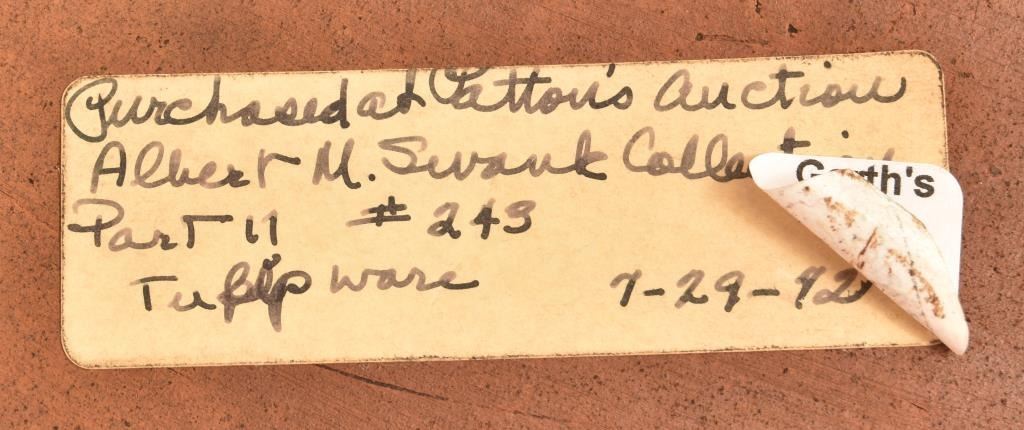 Purchased at Patton's Auction
Albert M. Swank Collection
Part 11 # 243
Tulip ware 7-29-72
Garth's